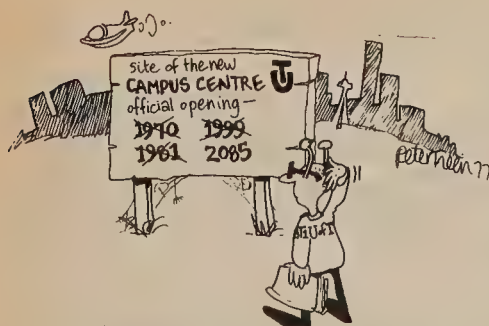 site of the new
CAMPUS CENTRE UT
official opening—
1970 1999
1981 2085
U of T